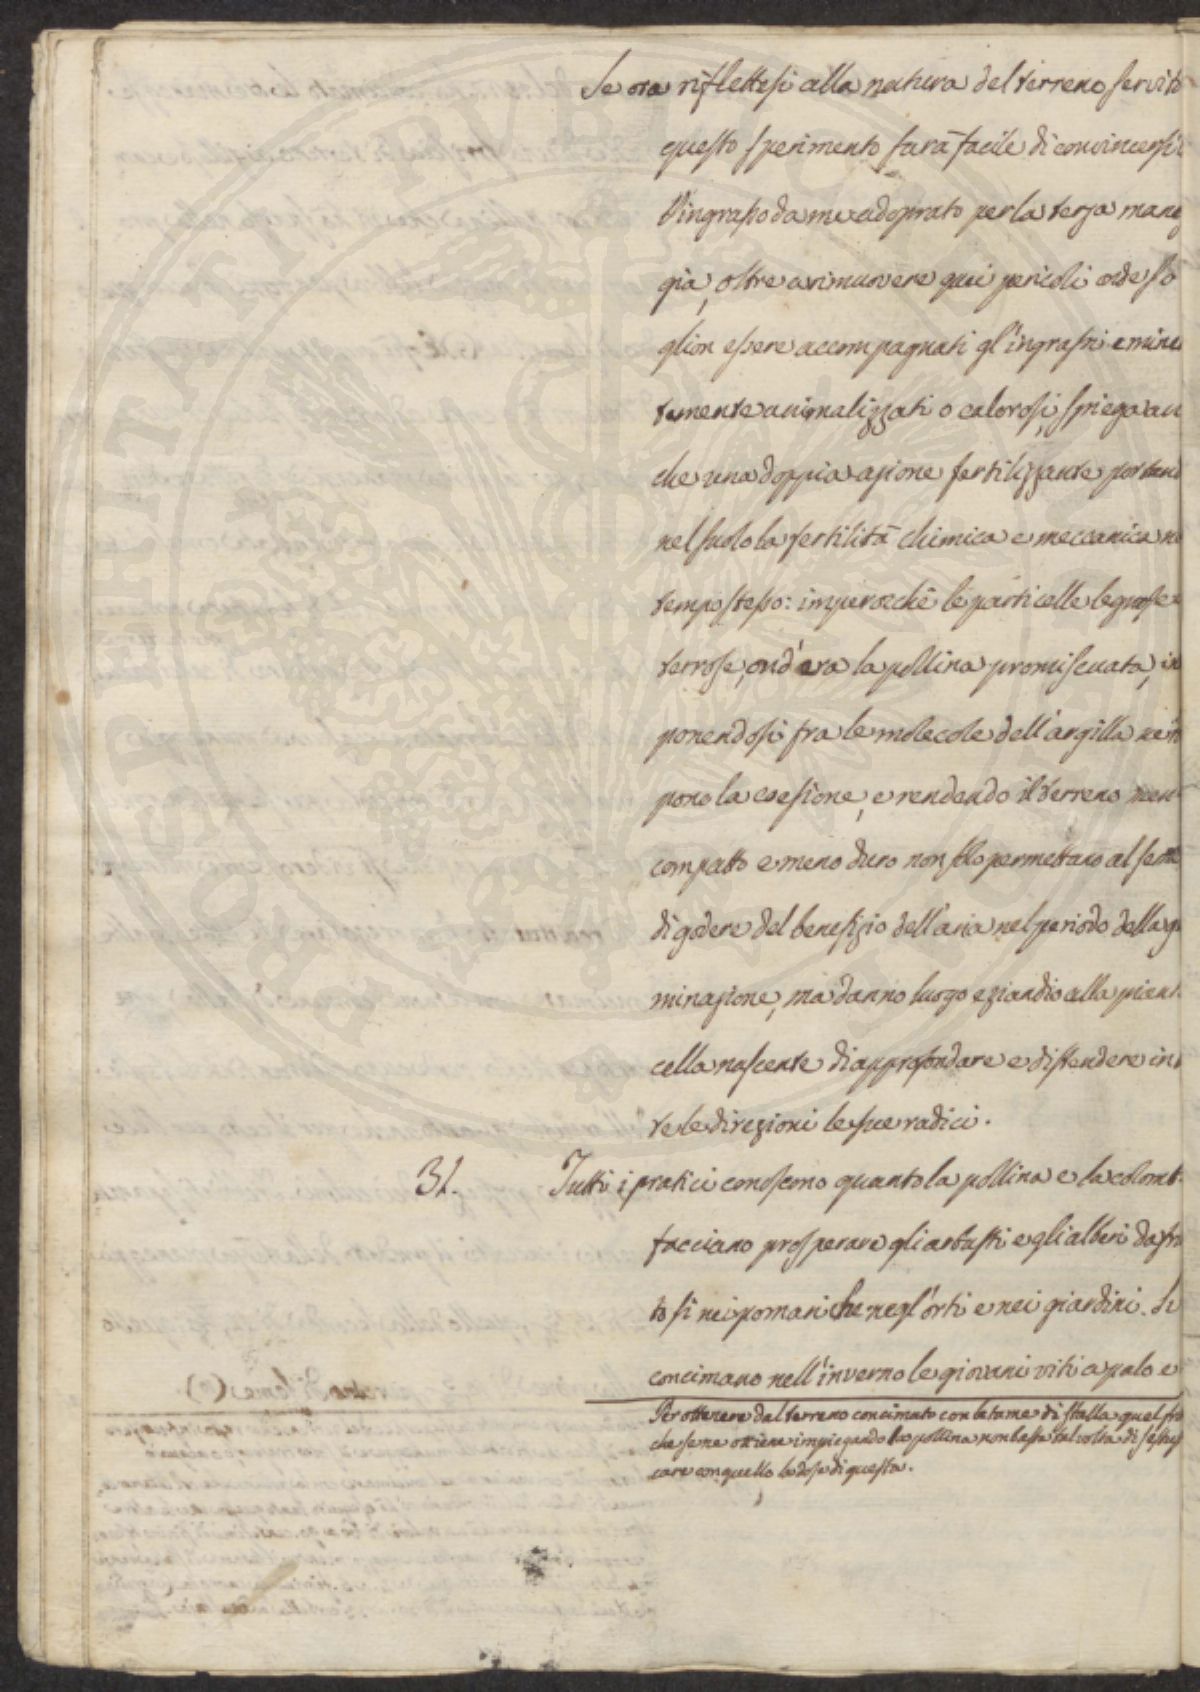 Se ora riflettesi alla natura del terreno servito
questo sperimento sarà facile di convincersi
l'ingrasso da me adoprato per la terza mang
gia, oltre a rimuovere quei pericoli onde so
glion essere accompagnati gl'ingrassi emine
temente animalizzati o calorosi, spiega an
che una doppia azione fertilizzante portand
nel suolo la fertilità chimica e meccanica n
tempo stesso: imperocchè le particelle legnose e
terrose, ond'era la pollina promiscuata, in
ponendosi fra le molecole dell'argilla ne
pono la coesione, e rendendo il terreno men
compatto e meno duro non solo permettano al seme
di godere del benefizio dell'aria nel periodo della g
minazione, ma danno luogo eziandio alla piant
cella nascente di approfondare e distendere in
te le direzioni le sue radici.
31. Tutti i pratici conoscono quanto la pollina e la colomb
facciano prosperare gli arbusti e gli alberi da fru
to sì nei pomari che negl'orti e nei giardini. Si
concimano nell'inverno le giovani viti a palo e
Per ottenere dal terreno concimato con letame di stalla quel fru
che se ne ottiene impiegando la pollina non basta talvolta di sestup
care con quello la dose di questa.
PROSPERITATI PUBLICAE